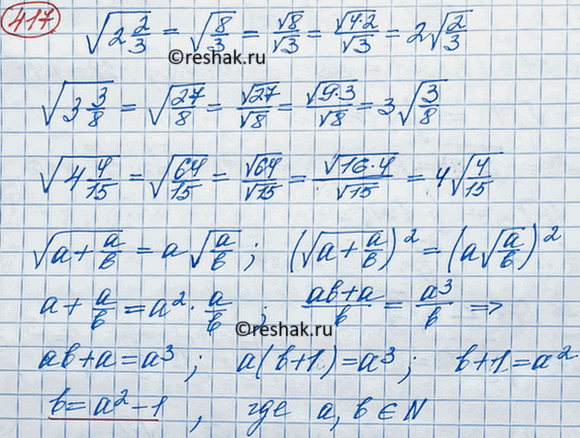 417 √(2 2/3) = √(8/3) = √8/√3 = √(4·2)/√3 = 2√(2/3)
©reshak.ru
√(3 3/8) = √(27/8) = √27/√8 = √(9·3)/√8 = 3√(3/8)
√(4 4/15) = √(64/15) = √64/√15 = √(16·4)/√15 = 4√(4/15)
√(a+a/b) = a√(a/b) ; (√(a+a/b))² = (a√(a/b))²
a + a/b = a² · a/b ; (ab+a)/b = a³/b ⇒
©reshak.ru
ab+a=a³ ; a(b+1)=a³ ; b+1=a²
b=a²-1 , где a, b ∈ N